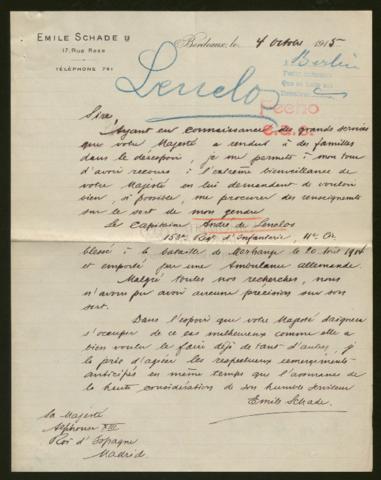 EMILE SCHADE
17, Rue Raze
TÉLÉPHONE 741
Bordeaux, le 4 Octobre 1915
Berlin
Lenclos
Fecho
Sire
Ayant eu connaissance des grands services
que votre Majesté a rendut à des familles
dans le désespoir, je me permets à mon tour
d'avoir recours à l'extrême bienveillance de
votre Majesté en lui demandant de vouloir
bien, si possible, me procurer des renseignements
sur le sort de mon gendre
Le Capitaine André de Lenclos
153me Regt d'Infanterie, 11e Cie
blessé à la bataille de Morhange le 20 Août 1914
et emporté par une Ambulance allemande.
Malgré toutes nos recherches, nous
n'avons pu avoir aucune précision sur son
sort.
Dans l'espoir que votre Majesté daignera
s'occuper de ce cas malheureux comme elle a
bien voulu le faire déjà de tant d'autres, je
la prie d'agréer les respectueux remerciments
anticipés en même temps que l'assurance de
la haute considération de son humble serviteur
Emile Schade.
Sa Majesté
Alphonse XIII
Roi d'Espagne
Madrid.